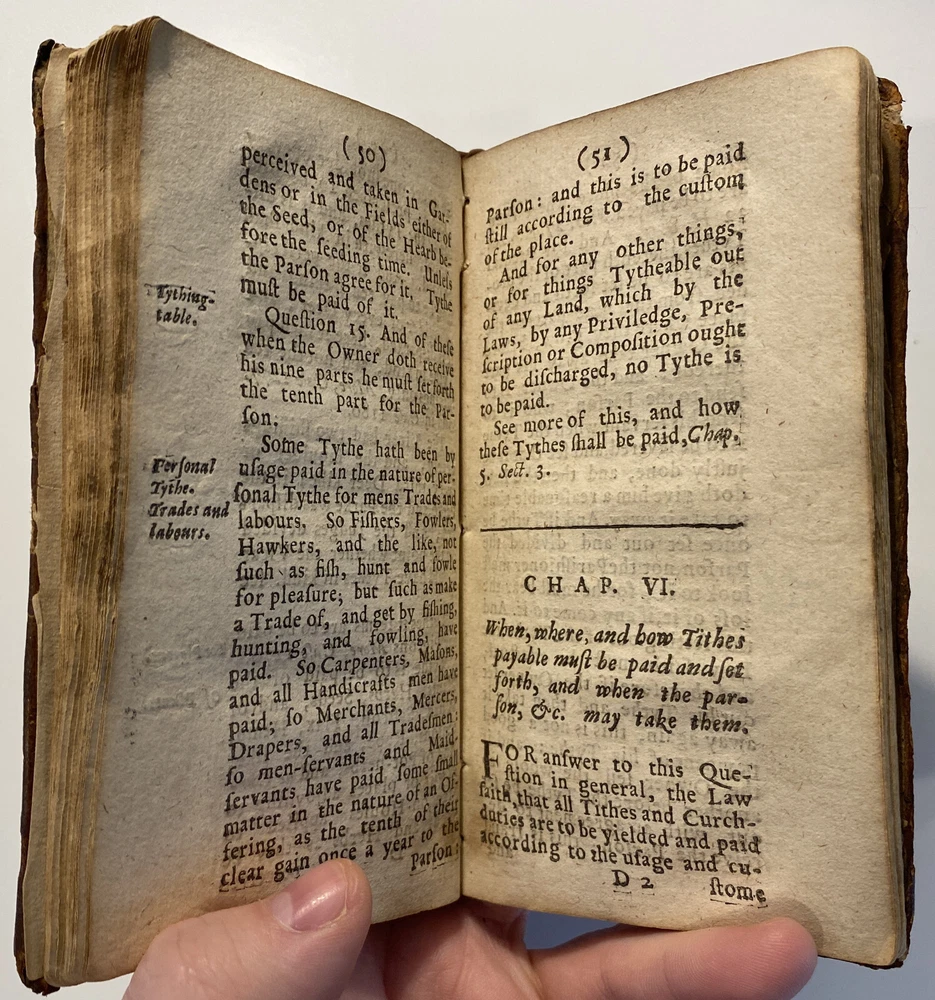 (50)
perceived and taken in Gar-
dens or in the Fields either of
the Seed, or of the Hearb be-
fore the ſeeding time. Unleſs
the Parſon agree for it, Tythe
muſt be paid of it.
Tything-
table.
Queſtion 15. And of theſe
when the Owner doth receive
his nine parts he muſt ſet forth
the tenth part for the Par-
ſon.
Perſonal
Tythe.
Trades and
labours.
Some Tythe hath been by
uſage paid in the nature of per-
ſonal Tythe for mens Trades and
labours. So Fiſhers, Fowlers,
Hawkers, and the like, not
ſuch as fiſh, hunt and fowle
for pleaſure; but ſuch as make
a Trade of, and get by fiſhing,
hunting, and fowling, have
paid. So Carpenters, Maſons,
and all Handicrafts men have
paid; ſo Merchants, Mercers,
Drapers, and all Tradeſmen:
ſo men-ſervants and Maid-
ſervants have paid ſome ſmall
matter in the nature of an Of-
fering, as the tenth of their
clear gain once a year to the
Parſon:
(51)
Parſon: and this is to be paid
ſtill according to the cuſtom
of the place.
And for any other things,
or for things Tytheable out
of any Land, which by the
Laws, by any Priviledge, Pre-
ſcription or Compoſition ought
to be diſcharged, no Tythe is
to be paid.
See more of this, and how
theſe Tythes ſhall be paid, Chap.
5. Sect. 3.
CHAP. VI.
When, where, and how Tithes
payable muſt be paid and ſet
forth, and when the par-
ſon, &c. may take them.
FOR anſwer to this Que-
ſtion in general, the Law
ſaith, that all Tithes and Curch-
duties are to be yielded and paid
according to the uſage and cu-
D 2 ſtome